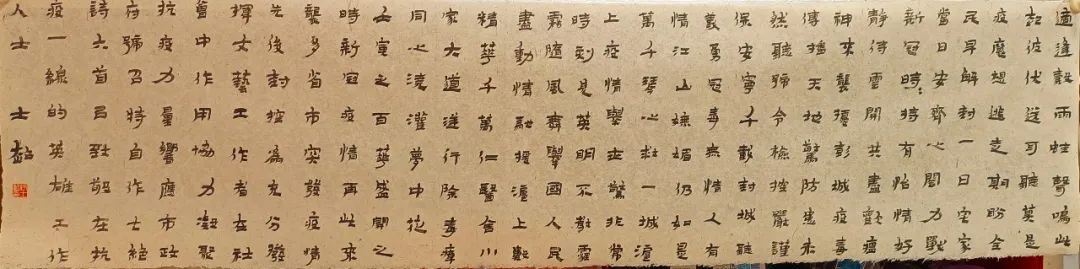 適逢穀雨蛙聲鳴此
起彼伏送可聽莫是
疫魔想逃走期盼全
民早解封一日宅家
當日安齊心閤力戰
新冠時待有怡情好
靜待雲開共盡瘟
神來襲擾彭城疫毒
傳播天地驚防患未
然聽號令檢控嚴謹
保安寧千載封城聽
義勇冠毒無情人有
情江山嫵媚仍如是
萬千琴心救一城滬
上疫情舉世驚非常
時刻見英明不散霾
霧隨風舞舉國人民
盡動情馳援滬上
精華千萬仁醫會川
家大道逆行除毒瘴
同心澆灌夢中花
壬寅之百華盛開之
時新冠疫情再此來
襲多省市突發疫情
先後封控為充分發
揮文藝工作者在社
會中作用協力凝聚
抗疫力量響應市政
府號召特自作七絕
詩六首以致敬在抗
疫一線的英雄工作
人士 士超